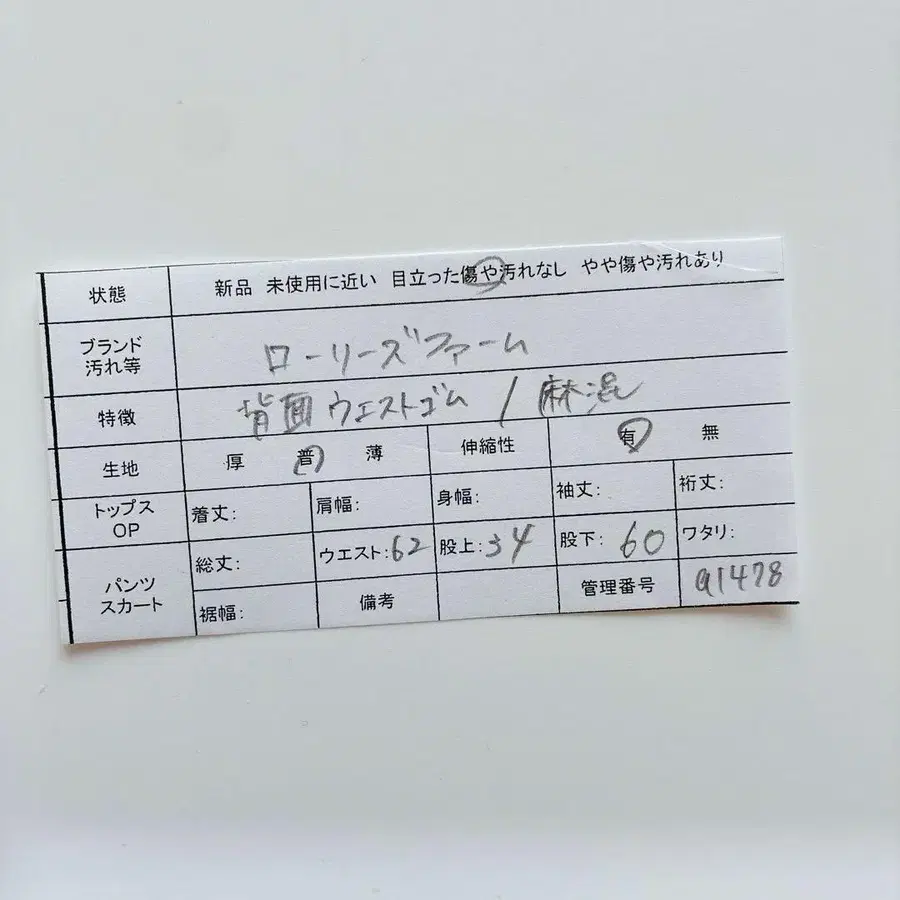 状態 新品 未使用に近い 目立った傷や汚れなし やや傷や汚れあり
ブランド
汚れ等 ローリーズファーム
特徴 背面ウエストゴム / 麻混
生地 厚 普 薄 伸縮性 有 無
トップス
OP 着丈: 肩幅: 身幅: 袖丈: 裄丈:
パンツ
スカート 総丈: ウエスト:62 股上:34 股下:60 ワタリ:
裾幅: 備考 管理番号 a1478